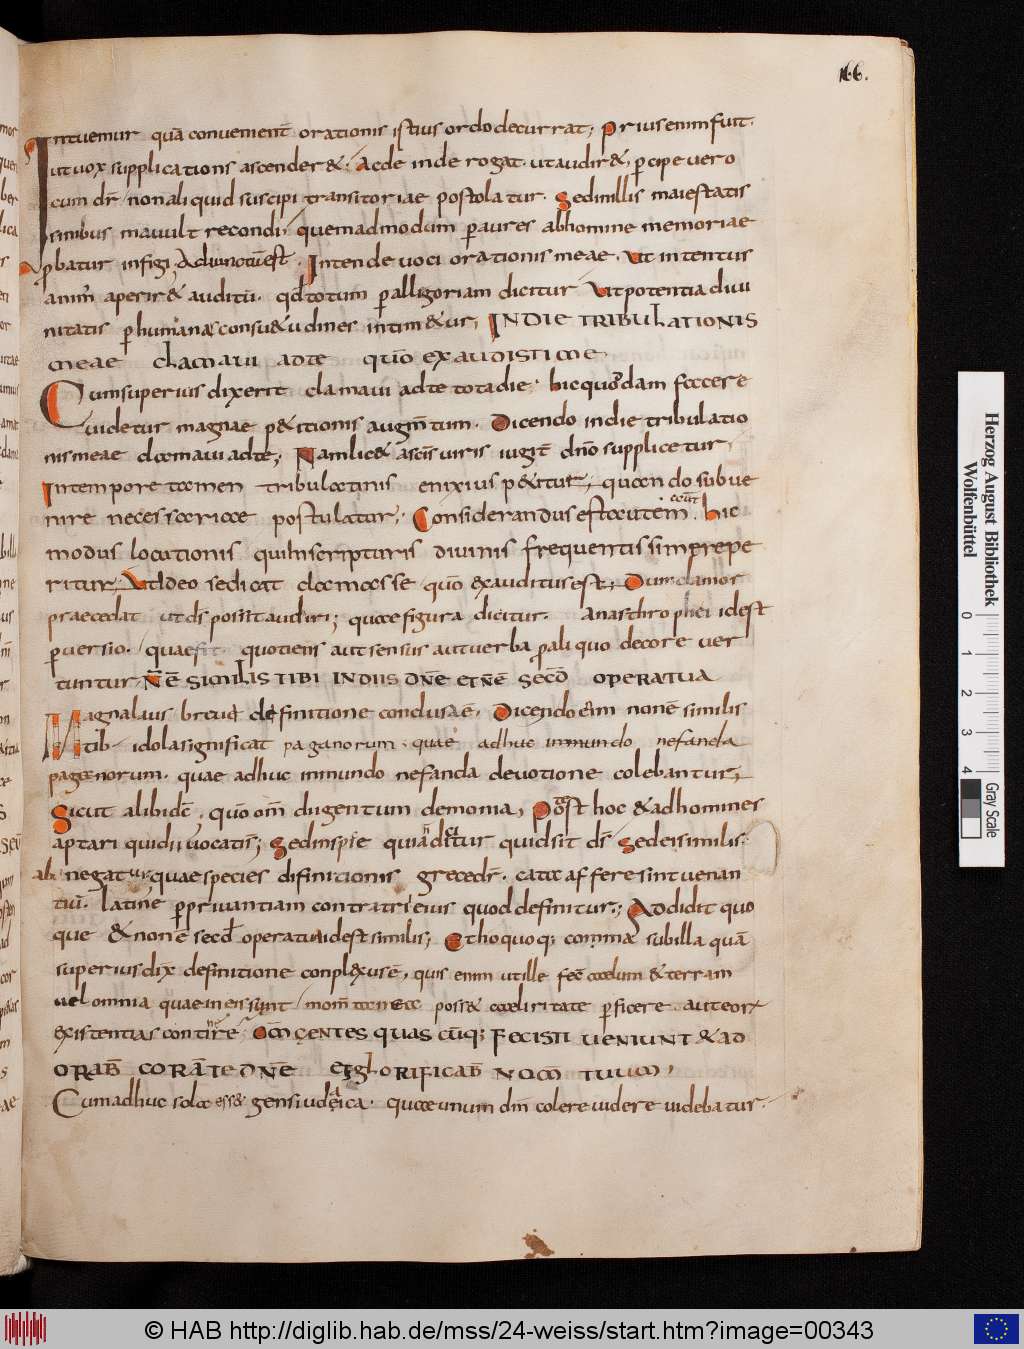 166.
Intuemur quā convenient̄ orationis istius ordo decurrat; Prius enim fuit.
ut vox supplicationis ascender&; Acde inde rogat. ut audir&; p̄cipe vero
cum dr̄ non aliquid suscipi transitoriae postolatur. Sed in illis maiestatis
sinibus mavult recondi; quemadmodum p̄ aures ab homine memoriae
p̄batur infigi, Adiunctūest. Intende voci orationis meae. Ut intentus
anim̄ aperir& auditū. qd̄ totum p̄ alligoriam dicitur Ut potentia divi
nitatis p̄ humanae consu&udines intim&ur, IN DIE TRIBULATIONIS
meae clamaui adte quō exaudistime.
Cum superius dixerit clamaui adte tota die. hic quodam faccere
uidetur magnae p&itionis augm̄tum. Dicendo in die tribulatio
nis meae clamaui adte; Nam lic& ascīs uiris iugit̄ dn̄o supplicetur,
In tempore tamen tribulatinis enixius p&itur, quando subue
nire necessariae postulatur; Considerandus est autem. hic
modus locutionis qui Inscripturis divinis frequentissim repe
ritur; Ut Ideo se dicat clamasse quō exauditus est; Dum clamor
praecedat ut ds̄ possit audiri; quae figura dicitur. anasthrophei idest
p̄versio. quae fit quotiens aut sensus aut verba p̄ aliquo decore ver
tuntur. N̄ Ē SIMILAS TIBI IN DIIS DN̄E ET N̄Ē SECD̄ OPERATUA
Magna laus brevi definitione conclusa ē. Dicendo enim non ē similis
tib idola significat paganorum. quae adhuc inmundo nefanda
paganorum. quae adhuc inmundo nefanda devotione colebantur,
Sicut alibi dic̄, quō om̄ dii gentium demonia, Post hoc & ad homines
aptari qui dii vocatis; Sed inspice quia dicitur quid sit ds̄ Sed ei similis.
ab. negatur quae species difinitionis grece dr̄. catx af fere sint venan
tiū. latine p̄ privantiam contratri eius quod definitur; Addidit quo
que & non ē secd̄ opera tua idest similis; Et hoc quoq; comma sub illa quā
superius dix̄ definitione conplexus ē, quis enim ut ille fec̄ caelum & terram
vel omnia quae in eis sunt momtanea poss& celiritate p̄ficere. aut eor
existentias continere OM̄ GENTES QUAS CŪQ; FECISTI VENIUNT & AD
ORAB̄ CORĀTE DN̄E & GLORIFICAB̄ NOM̄ TUUM,
Cum adhuc sola ess& gens iudeica. quae unum dm̄ colere videre uidebatur.
Herzog August Bibliothek
Wolfenbüttel
0 1 2 3 4
Gray Scale
© HAB http://diglib.hab.de/mss/24-weiss/start.htm?image=00343